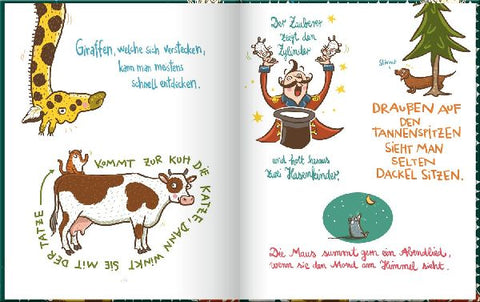 Giraffen, welche sich verstecken,
kann man meistens
schnell entdecken.
KOMMT ZUR KUH DIE KATZE, DANN WINKT SIE MIT DER TATZE
Der Zauberer
zeigt den
Zylinder
und holt heraus
zwei Hasenkinder.
Stimmt
DRAUẞEN AUF
DEN
TANNENSPITZEN
SIEHT MAN
SELTEN
DACKEL SITZEN.
Die Maus summt gern ein Abendlied,
wenn sie den Mond am Himmel sieht.